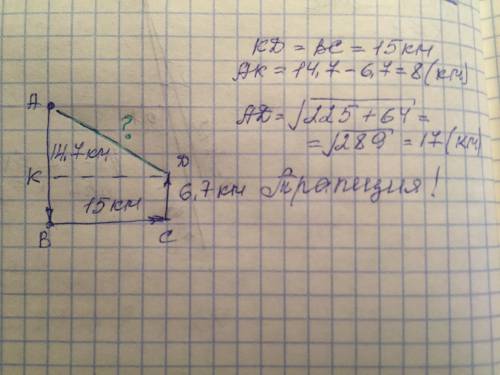 KD = BC = 15 км
AK = 14,7 - 6,7 = 8 (км)
AD = √225 + 64 =
= √289 = 17 (км)
Трапиция!
A
?
14,7 км
D
K
6,7 км
15 км
B
C